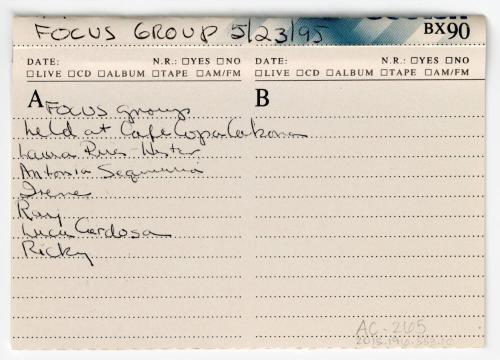 FOCUS GROUP 5/23/95 BX90
DATE: N.R.: □YES □NO DATE: N.R.: □YES □NO
□LIVE □CD □ALBUM □TAPE □AM/FM □LIVE □CD □ALBUM □TAPE □AM/FM
A B
FOCUS group
held at Cafe Copa Cabana
Laura
Antonia
Irene
Ray
Lucia Cardosa
Ricky
AC-265